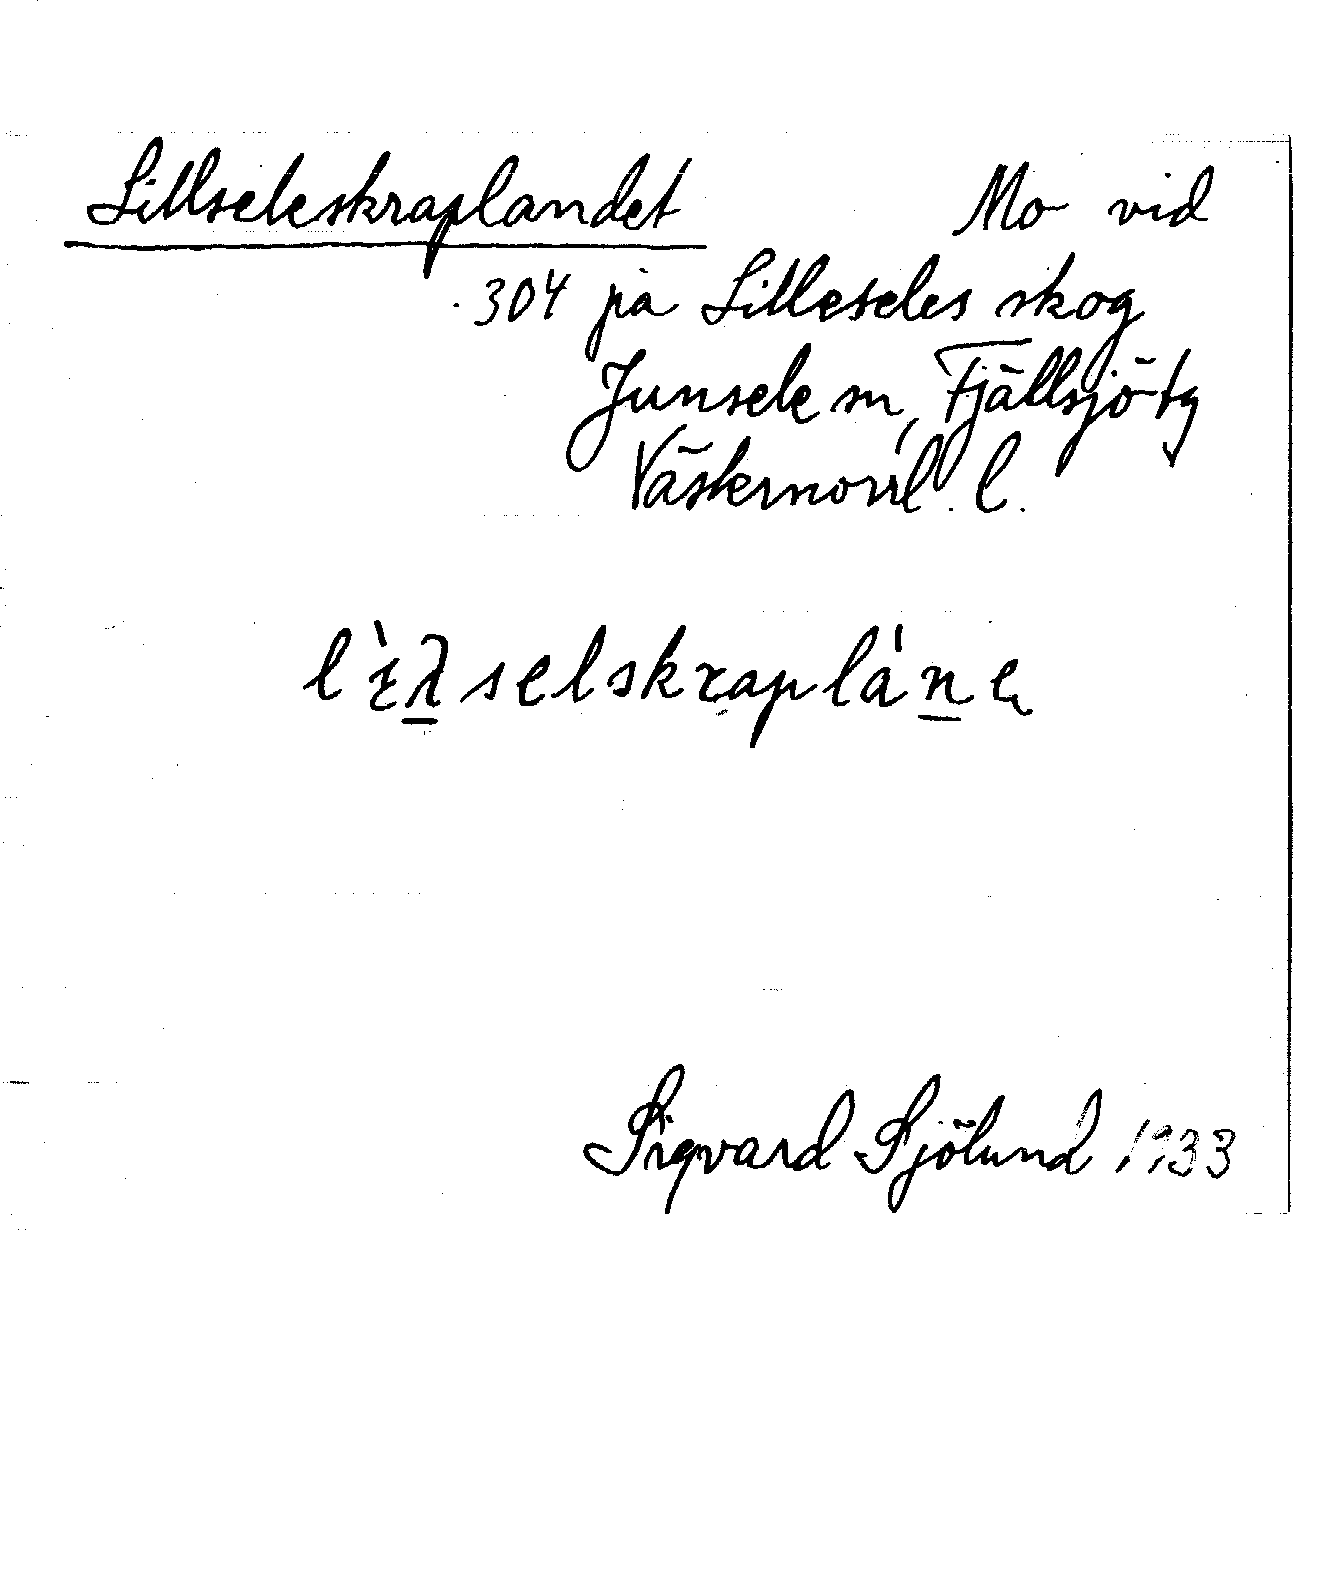 Lillseleskraplandet Mo vid
. 304 på Lilleseles skog
Junsele sn, Fjällsjö tg
Västernorrl. l.
Sigvard Sjölund 1933